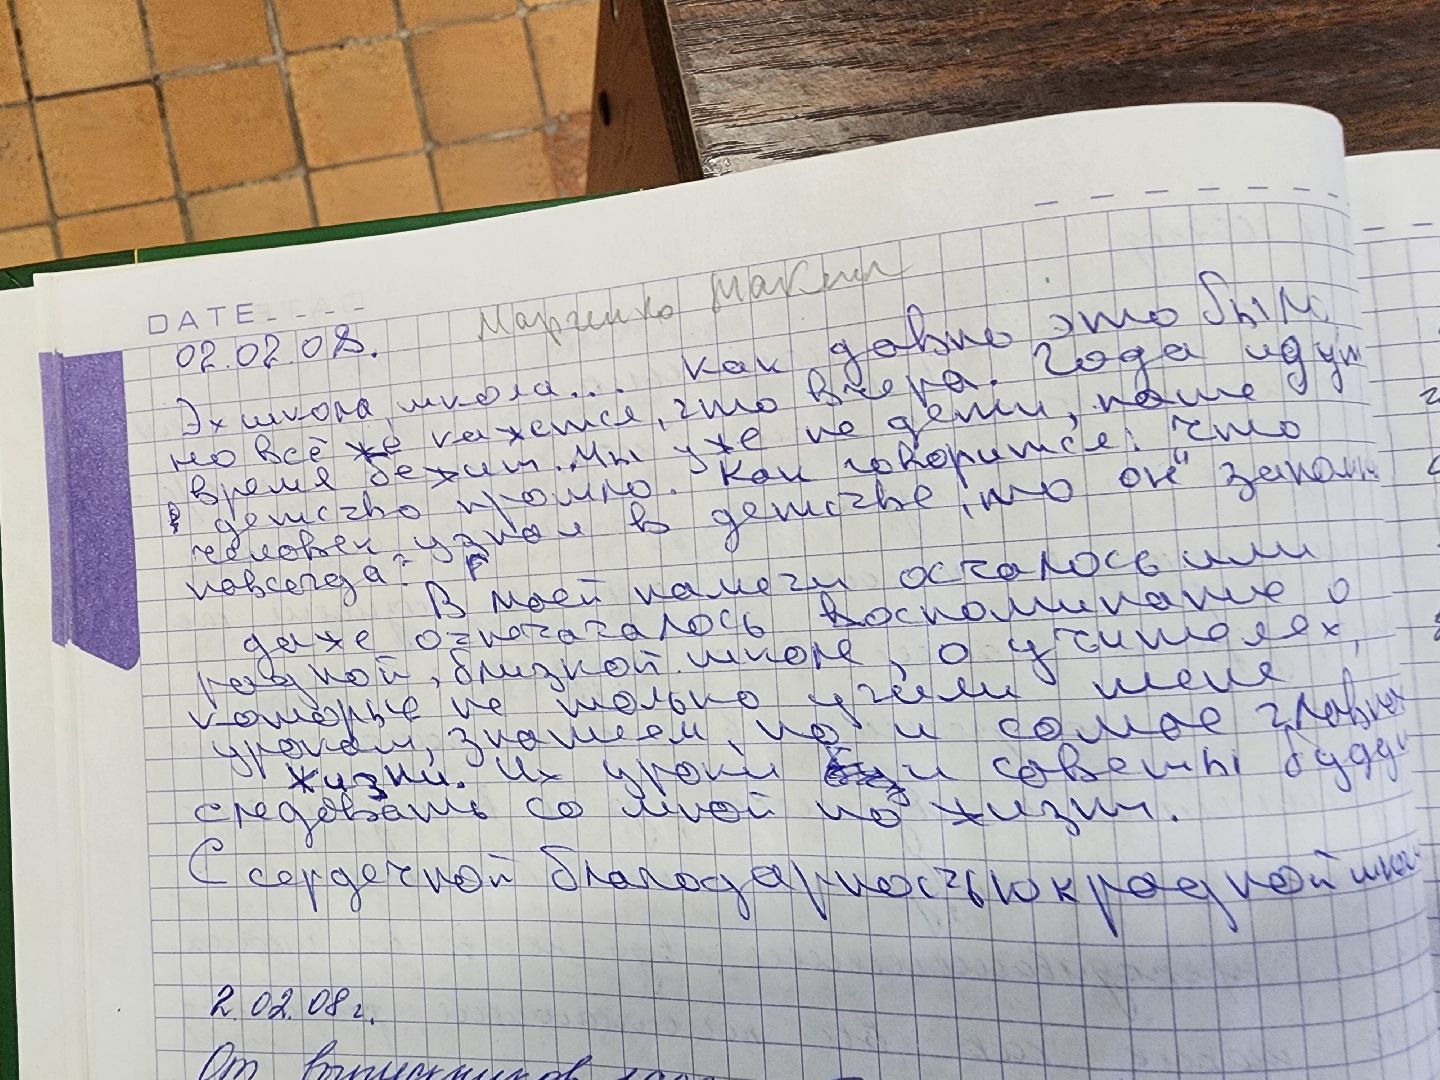 DATE
Марченко Максим
02.02.08.
Эх школа, школа... как давно это было,
но всё же кажется, что вчера. Года идут
время бежит. Мы уже не дети, наше
детство прошло. Как говорится: "что
человек узнал в детстве, то он запомнил
навсегда".
В моей памяти осталось или
даже отпечаталось воспоминание о
родной, близкой школе, о учителях,
которые не только учили меня
урокам, знанием, но и самое главное
жизни. Их уроки и советы будут
следовать со мной по жизни.
С сердечной благодарностью к родной школе
2.02.08 г.
От выпускников